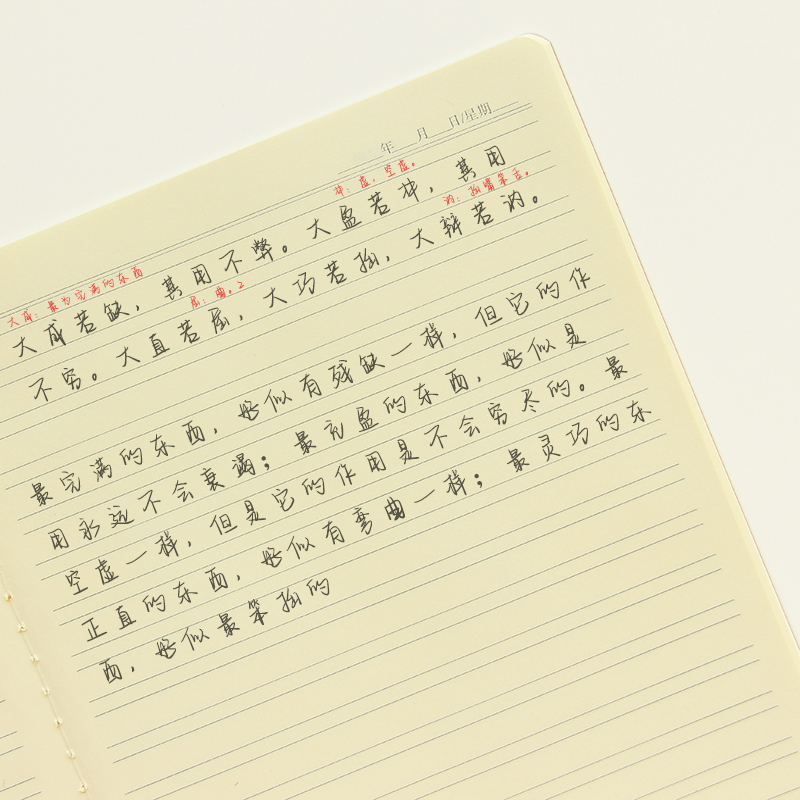 年 月 日/星期
大成：最为完满的东西 冲：虚，空虚。
大成若缺，其用不弊。大盈若冲，其用
屈：曲。 讷：拙嘴笨舌。
不穷。大直若屈，大巧若拙，大辩若讷。
最完满的东西，好似有残缺一样，但它的作
用永远不会衰竭；最充盈的东西，好似是
空虚一样，但是它的作用是不会穷尽的。最
正直的东西，好似有弯曲一样；最灵巧的东
西，好似最笨拙的